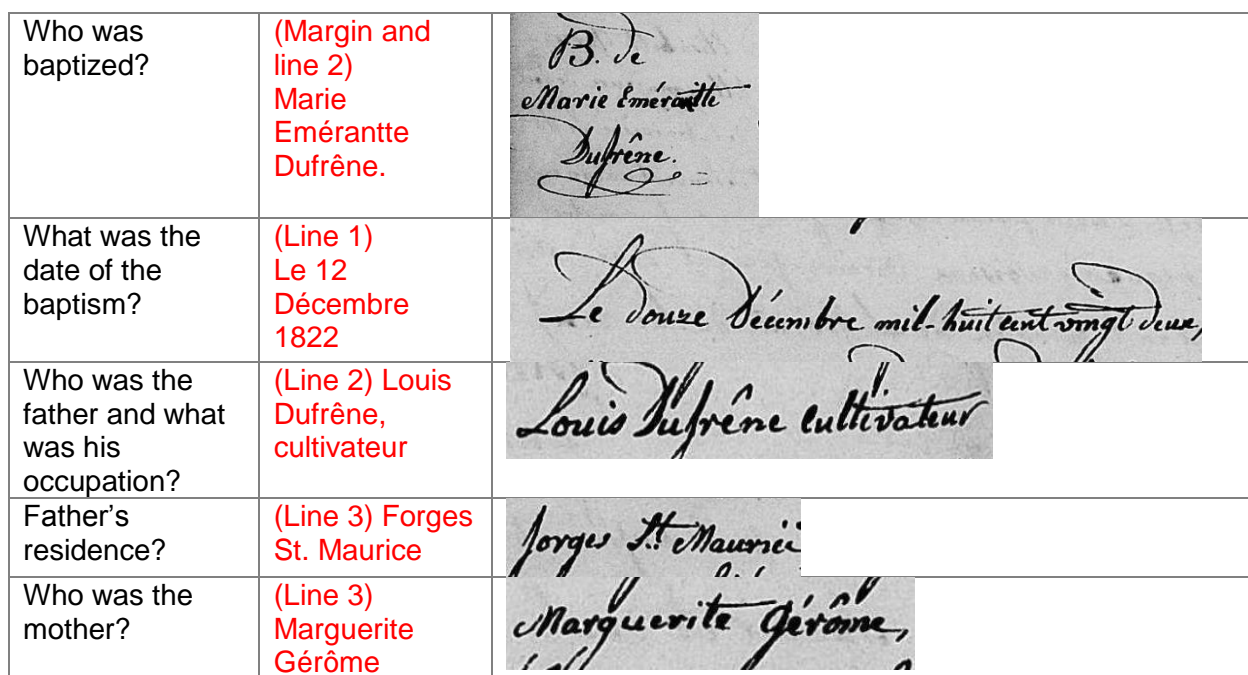 Who was
baptized?
(Margin and
line 2)
Marie
Emérantte
Dufrêne.
B. de
Marie Emérantte
Dufrêne.
What was the
date of the
baptism?
(Line 1)
Le 12
Décembre
1822
Le douze Décembre mil-huit cent vingt deux,
Who was the
father and what
was his
occupation?
(Line 2) Louis
Dufrêne,
cultivateur
Louis Dufrêne cultivateur
Father's
residence?
(Line 3) Forges
St. Maurice
forges St. Maurice
Who was the
mother?
(Line 3)
Marguerite
Gérôme
Marguerite Gérôme,